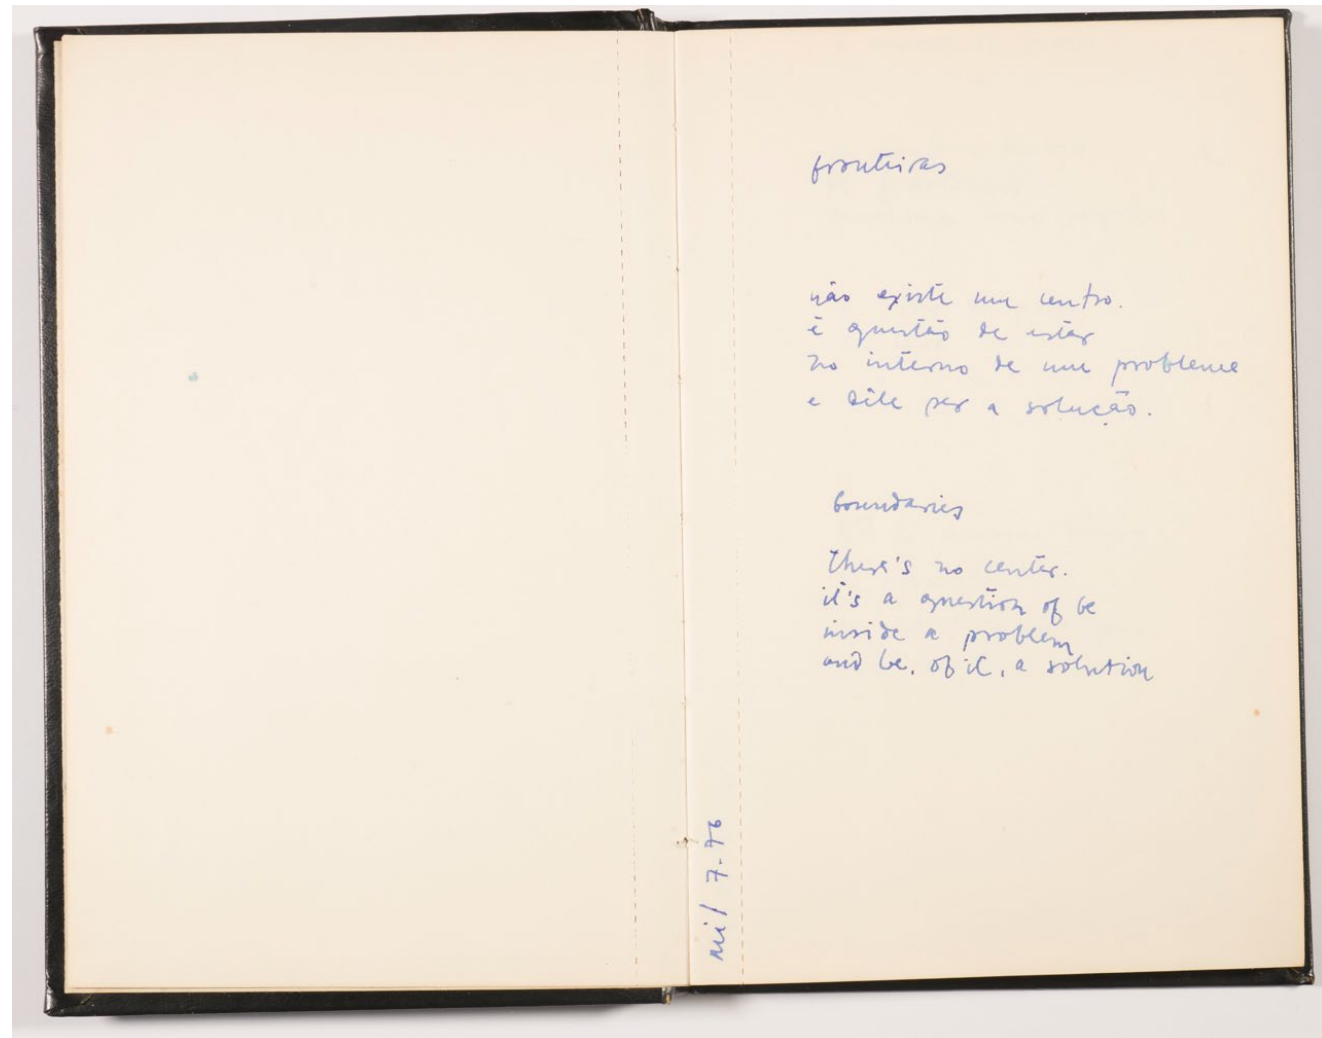 fronteiras
não existe um centro.
é questão de estar
no interno de um problema
e dele ser a solução.
boundaries
there's no center.
it's a question of be
inside a problem
and be, of it, a solution
mil 7-76